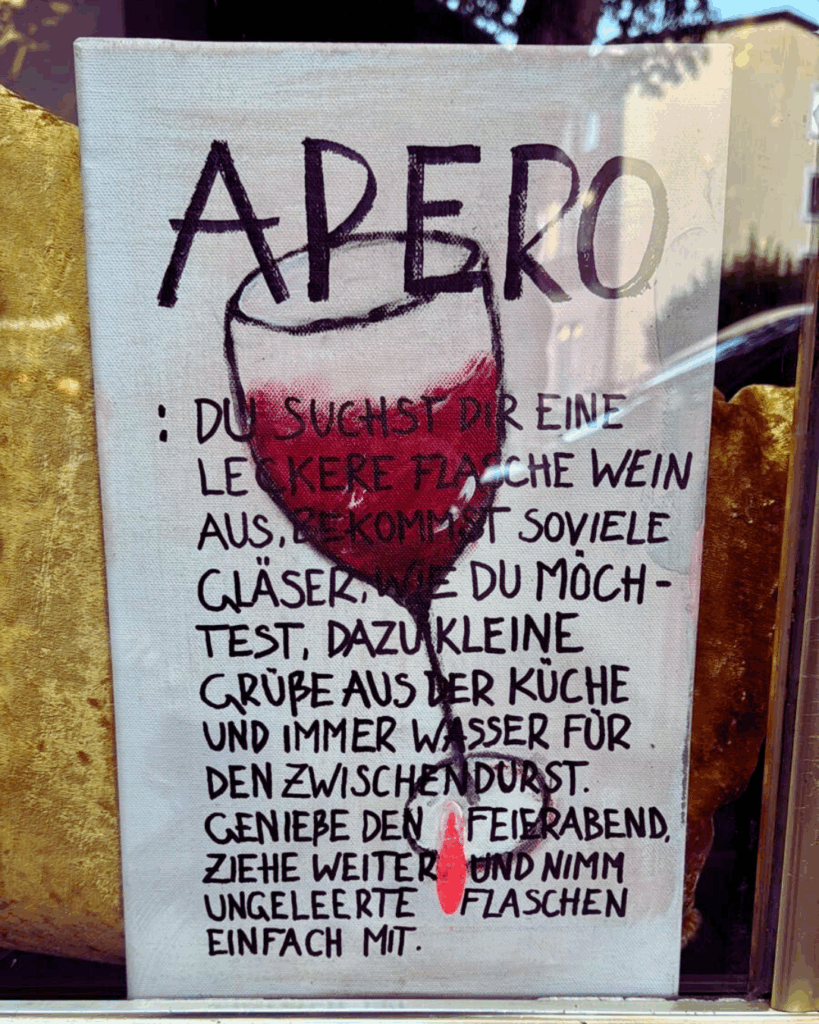 APERO
: DU SUCHST DIR EINE
LECKERE FLASCHE WEIN
AUS, BEKOMMST SOVIELE
GLÄSER, WIE DU MÖCH-
TEST, DAZU KLEINE
GRÜßE AUS DER KÜCHE
UND IMMER WASSER FÜR
DEN ZWISCHENDURST.
GENIEßE DEN FEIERABEND,
ZIEHE WEITER UND NIMM
UNGELEERTE FLASCHEN
EINFACH MIT.